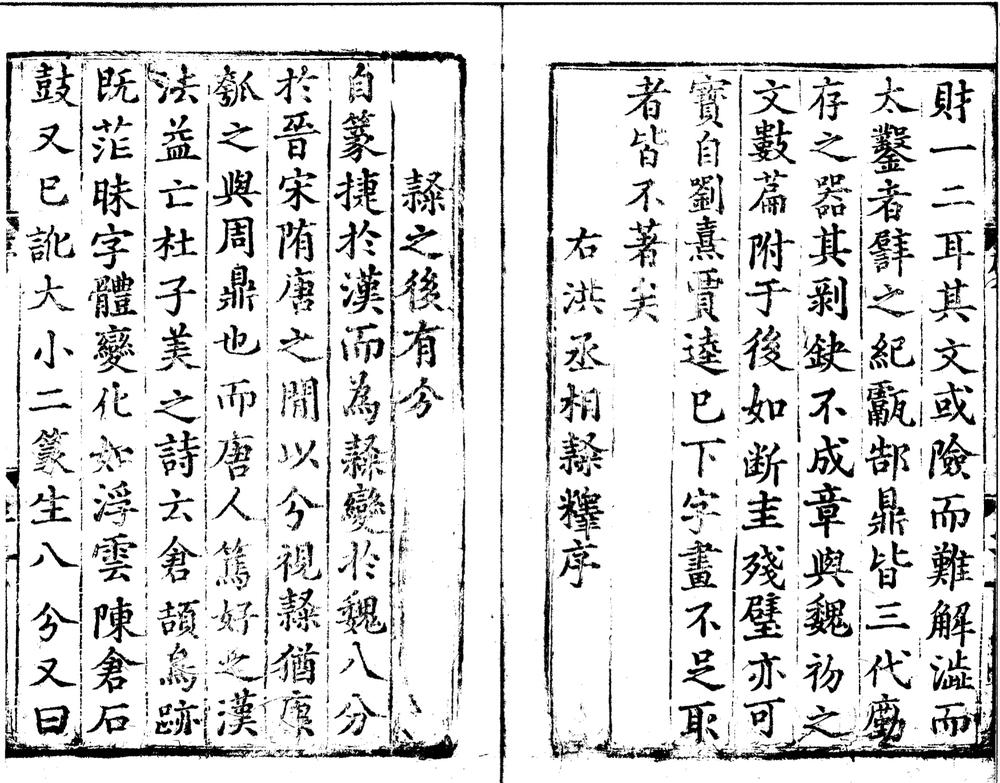 財一二耳其文或險而難解澁而
太鑿者辥之紀甗郜鼎皆三代勳
存之器其剥缺不成章與魏初之
文數篇附于後如断圭殘璧亦可
寶自劉熹賈逵已下字畫不足取
者皆不著矣
右洪丞相隸釋序
隸之後有分
自篆捷於漢而為隸變於魏八分
於晉宋隋唐之間以分視隸猶康
瓠之與周鼎也而唐人篤好之漢
法益亡杜子美之詩云倉頡鳥跡
既茫昧字體變化如浮雲陳倉石
鼓又已訛大小二篆生八分又曰